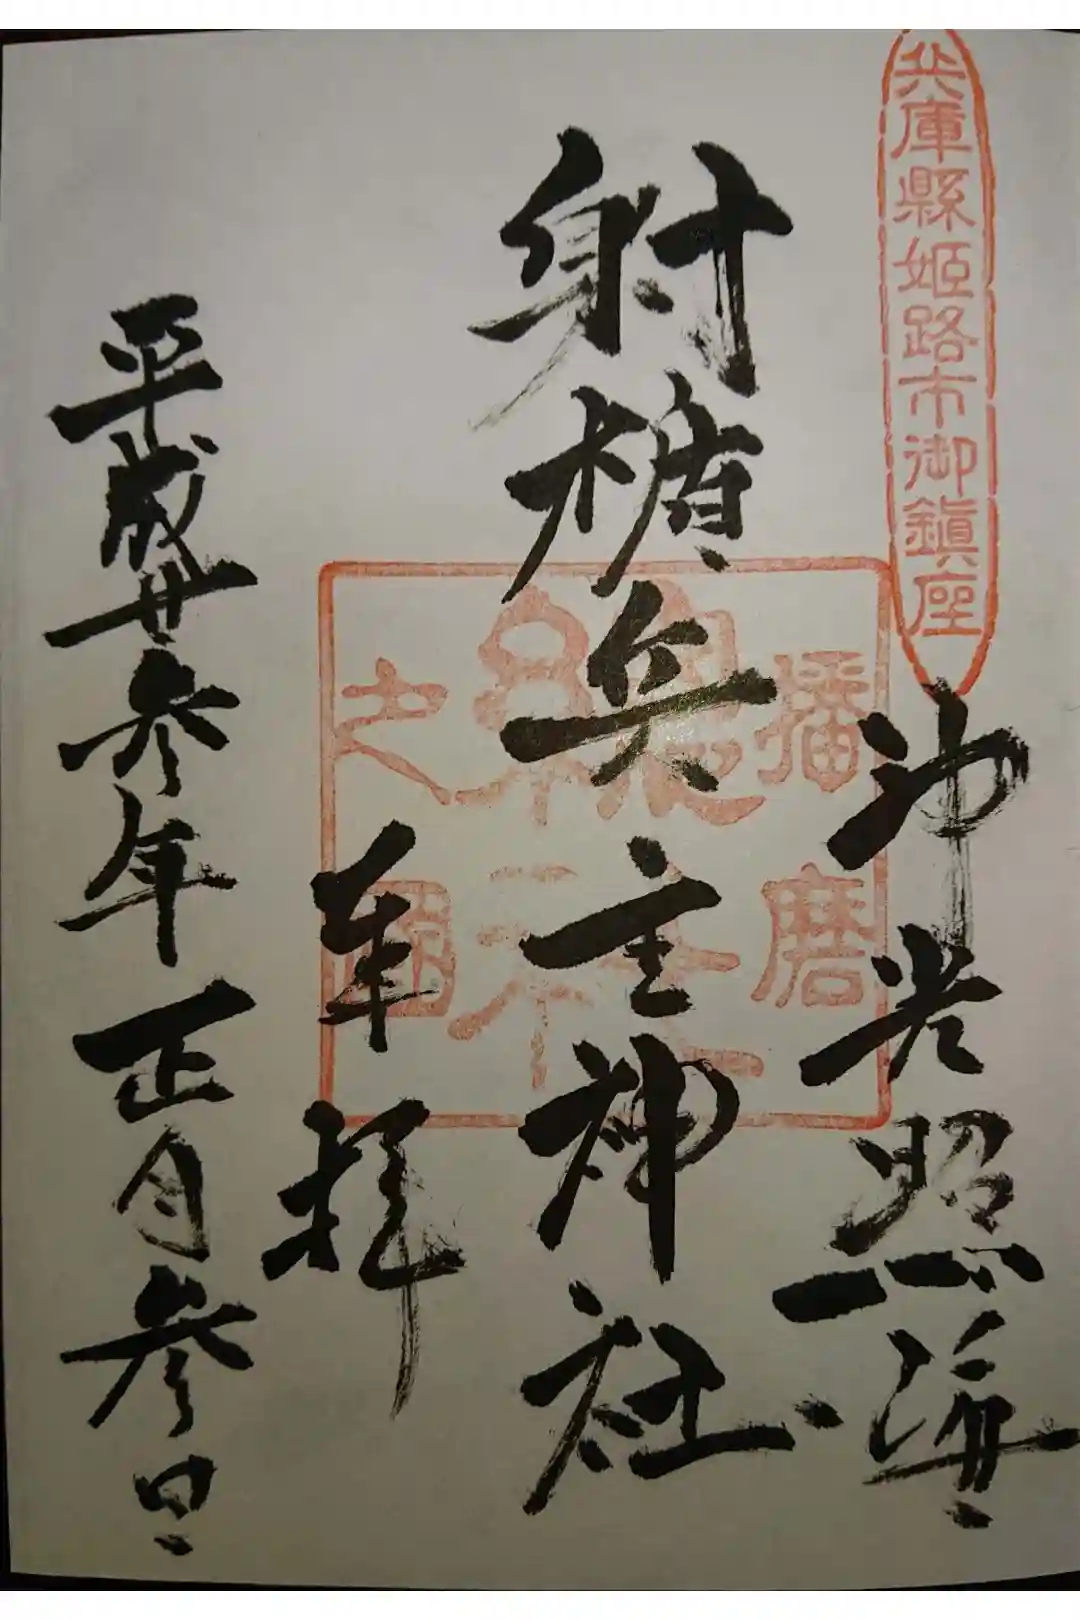 兵庫縣姫路市御鎮座
神光照海
射楯兵主神社
播磨
總社
之國
奉拝
平成廿参年正月参日